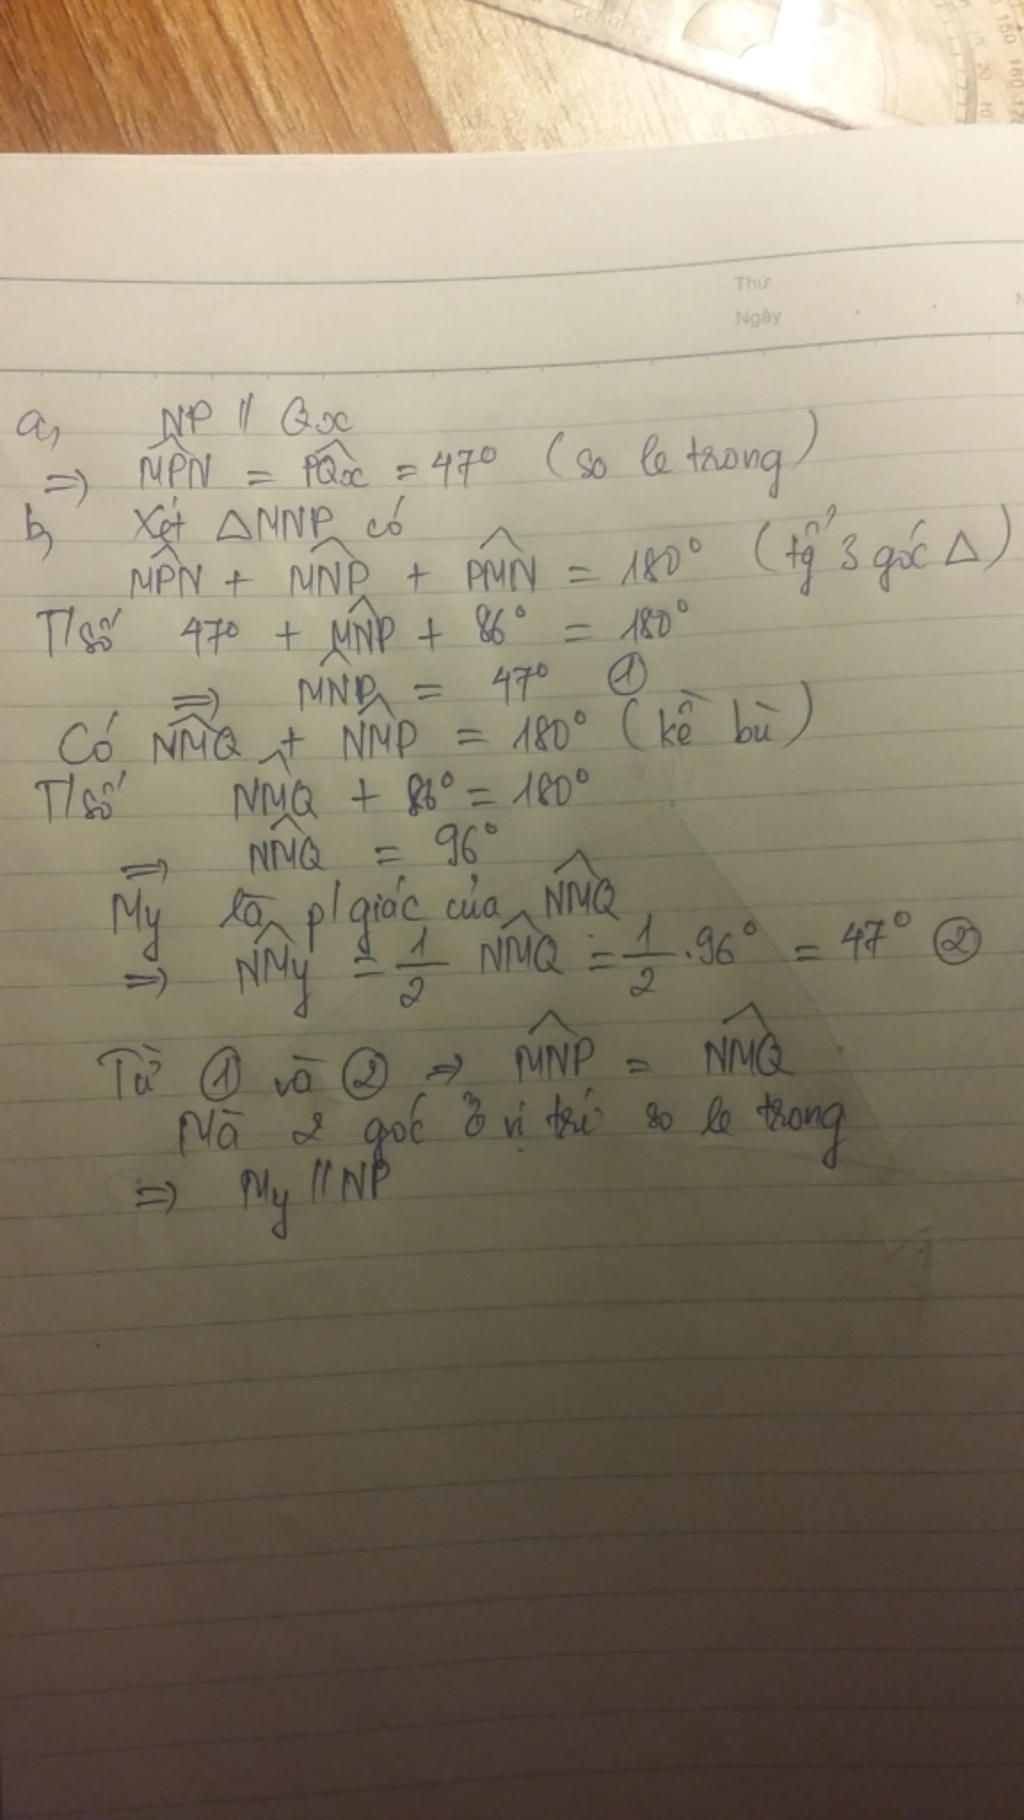 Thứ
Ngày
a, NP // Qx
=> MPN = PQx = 47° (so le trong)
b, Xét △MNP có
MPN + MNP + PMN = 180° (tg 3 góc △)
T/số 47° + MNP + 86° = 180°
=> MNP = 47° ①
Có NMQ + NMP = 180° (kề bù)
T/số NMQ + 86° = 180°
=> NMQ = 96°
My là p/giác của NMQ
=> NMy = 1/2 NMQ = 1/2 . 96° = 47° ②
Từ ① và ② => MNP = NMQ
Mà 2 góc ở vị trí so le trong
=> My // NP